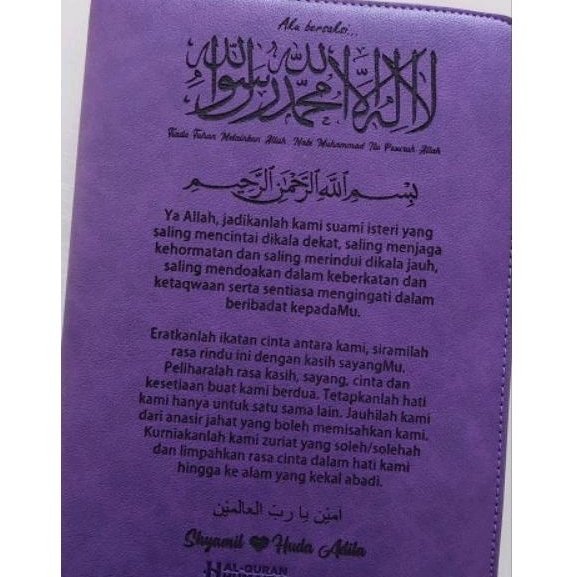 Aku bersaksi...
لا اله الا الله محمد رسول الله
Tiada Tuhan Melainkan Allah, Nabi Muhammad Itu Pesuruh Allah
بِسْمِ اللَّهِ الرَّحْمَٰنِ الرَّحِيمِ
Ya Allah, jadikanlah kami suami isteri yang
saling mencintai dikala dekat, saling menjaga
kehormatan dan saling merindui dikala jauh,
saling mendoakan dalam keberkatan dan
ketaqwaan serta sentiasa mengingati dalam
beribadat kepadaMu.
Eratkanlah ikatan cinta antara kami, siramilah
rasa rindu ini dengan kasih sayangMu.
Peliharalah rasa kasih, sayang, cinta dan
kesetiaan buat kami berdua. Tetapkanlah hati
kami hanya untuk satu sama lain. Jauhilah kami
dari anasir jahat yang boleh memisahkan kami.
Kurniakanlah kami zuriat yang soleh/solehah
dan limpahkan rasa cinta dalam hati kami
hingga ke alam yang kekal abadi.
امين يا ربّ العالمين
Shyamil ❤ Huda Adila
AL-QURAN